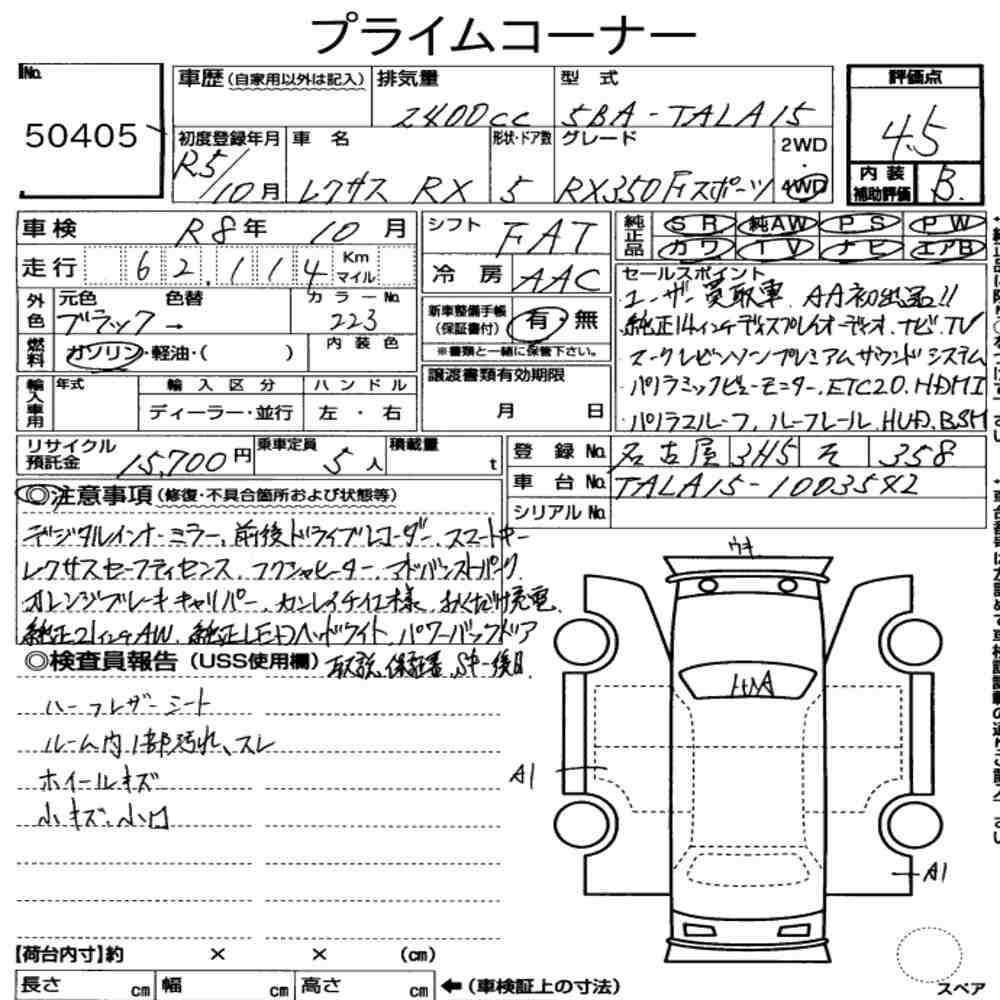 プライムコーナー
No. 50405
車歴 (自家用以外は記入) 排気量 2400cc 型式 5BA-TALA15
初度登録年月 R5/10月 車名 レクサス RX 形状・ドア数 5 グレード RX350Fスポーツ 2WD・4WD
評価点 4.5
内装補助評価 B
車検 R8年 10月
走行 62,114 Km マイル
外色 元色 ブラック → 色替 カラーNo. 223
燃料 ガソリン・軽油・( ) 内装色
輸入車用 年式 輸入区分 ディーラー・並行 ハンドル 左・右
シフト FAT
冷房 AAC
新車整備手帳 (保証書付) 有・無
※書類と一緒に保管下さい。
譲渡書類有効期限
月 日
純正品 SR 純AW PS PW
カワ TV ナビ エアB
セールスポイント
ユーザー買取車 AA初出品!!
純正14インチディスプレイオーディオ、ナビ、TV
マークレビンソンプレミアムサウンドシステム
パノラミックビューモニター、ETC2.0、HDMI
パノラマルーフ、ルーフレール、HUD、BSM
リサイクル預託金 15,700円 乗車定員 5人 積載量 t
登録No. 名古屋 3H5 そ 358
車台No. TALA15-10035X2
シリアルNo.
◎注意事項 (修復・不具合箇所および状態等)
デジタルインナーミラー、前後ドライブレコーダー、スマートキー
レクサスセーフティセンス、フロントシートヒーター、アドバンストパーク
オレンジブレーキキャリパー、カンレイチ仕様、おくだけ充電
純正21インチAW、純正LEDヘッドライト、パワーバックドア
◎検査員報告 (USS使用欄) 取説、保証書、Sキー後日
ハーフレザーシート
ルーム内1部汚れ、スレ
ホイールキズ
小キズ、小凹
ウキ
A1
A1
【荷台内寸】約 × × (cm)
長さ cm 幅 cm 高さ cm ←(車検証上の寸法)
スペア